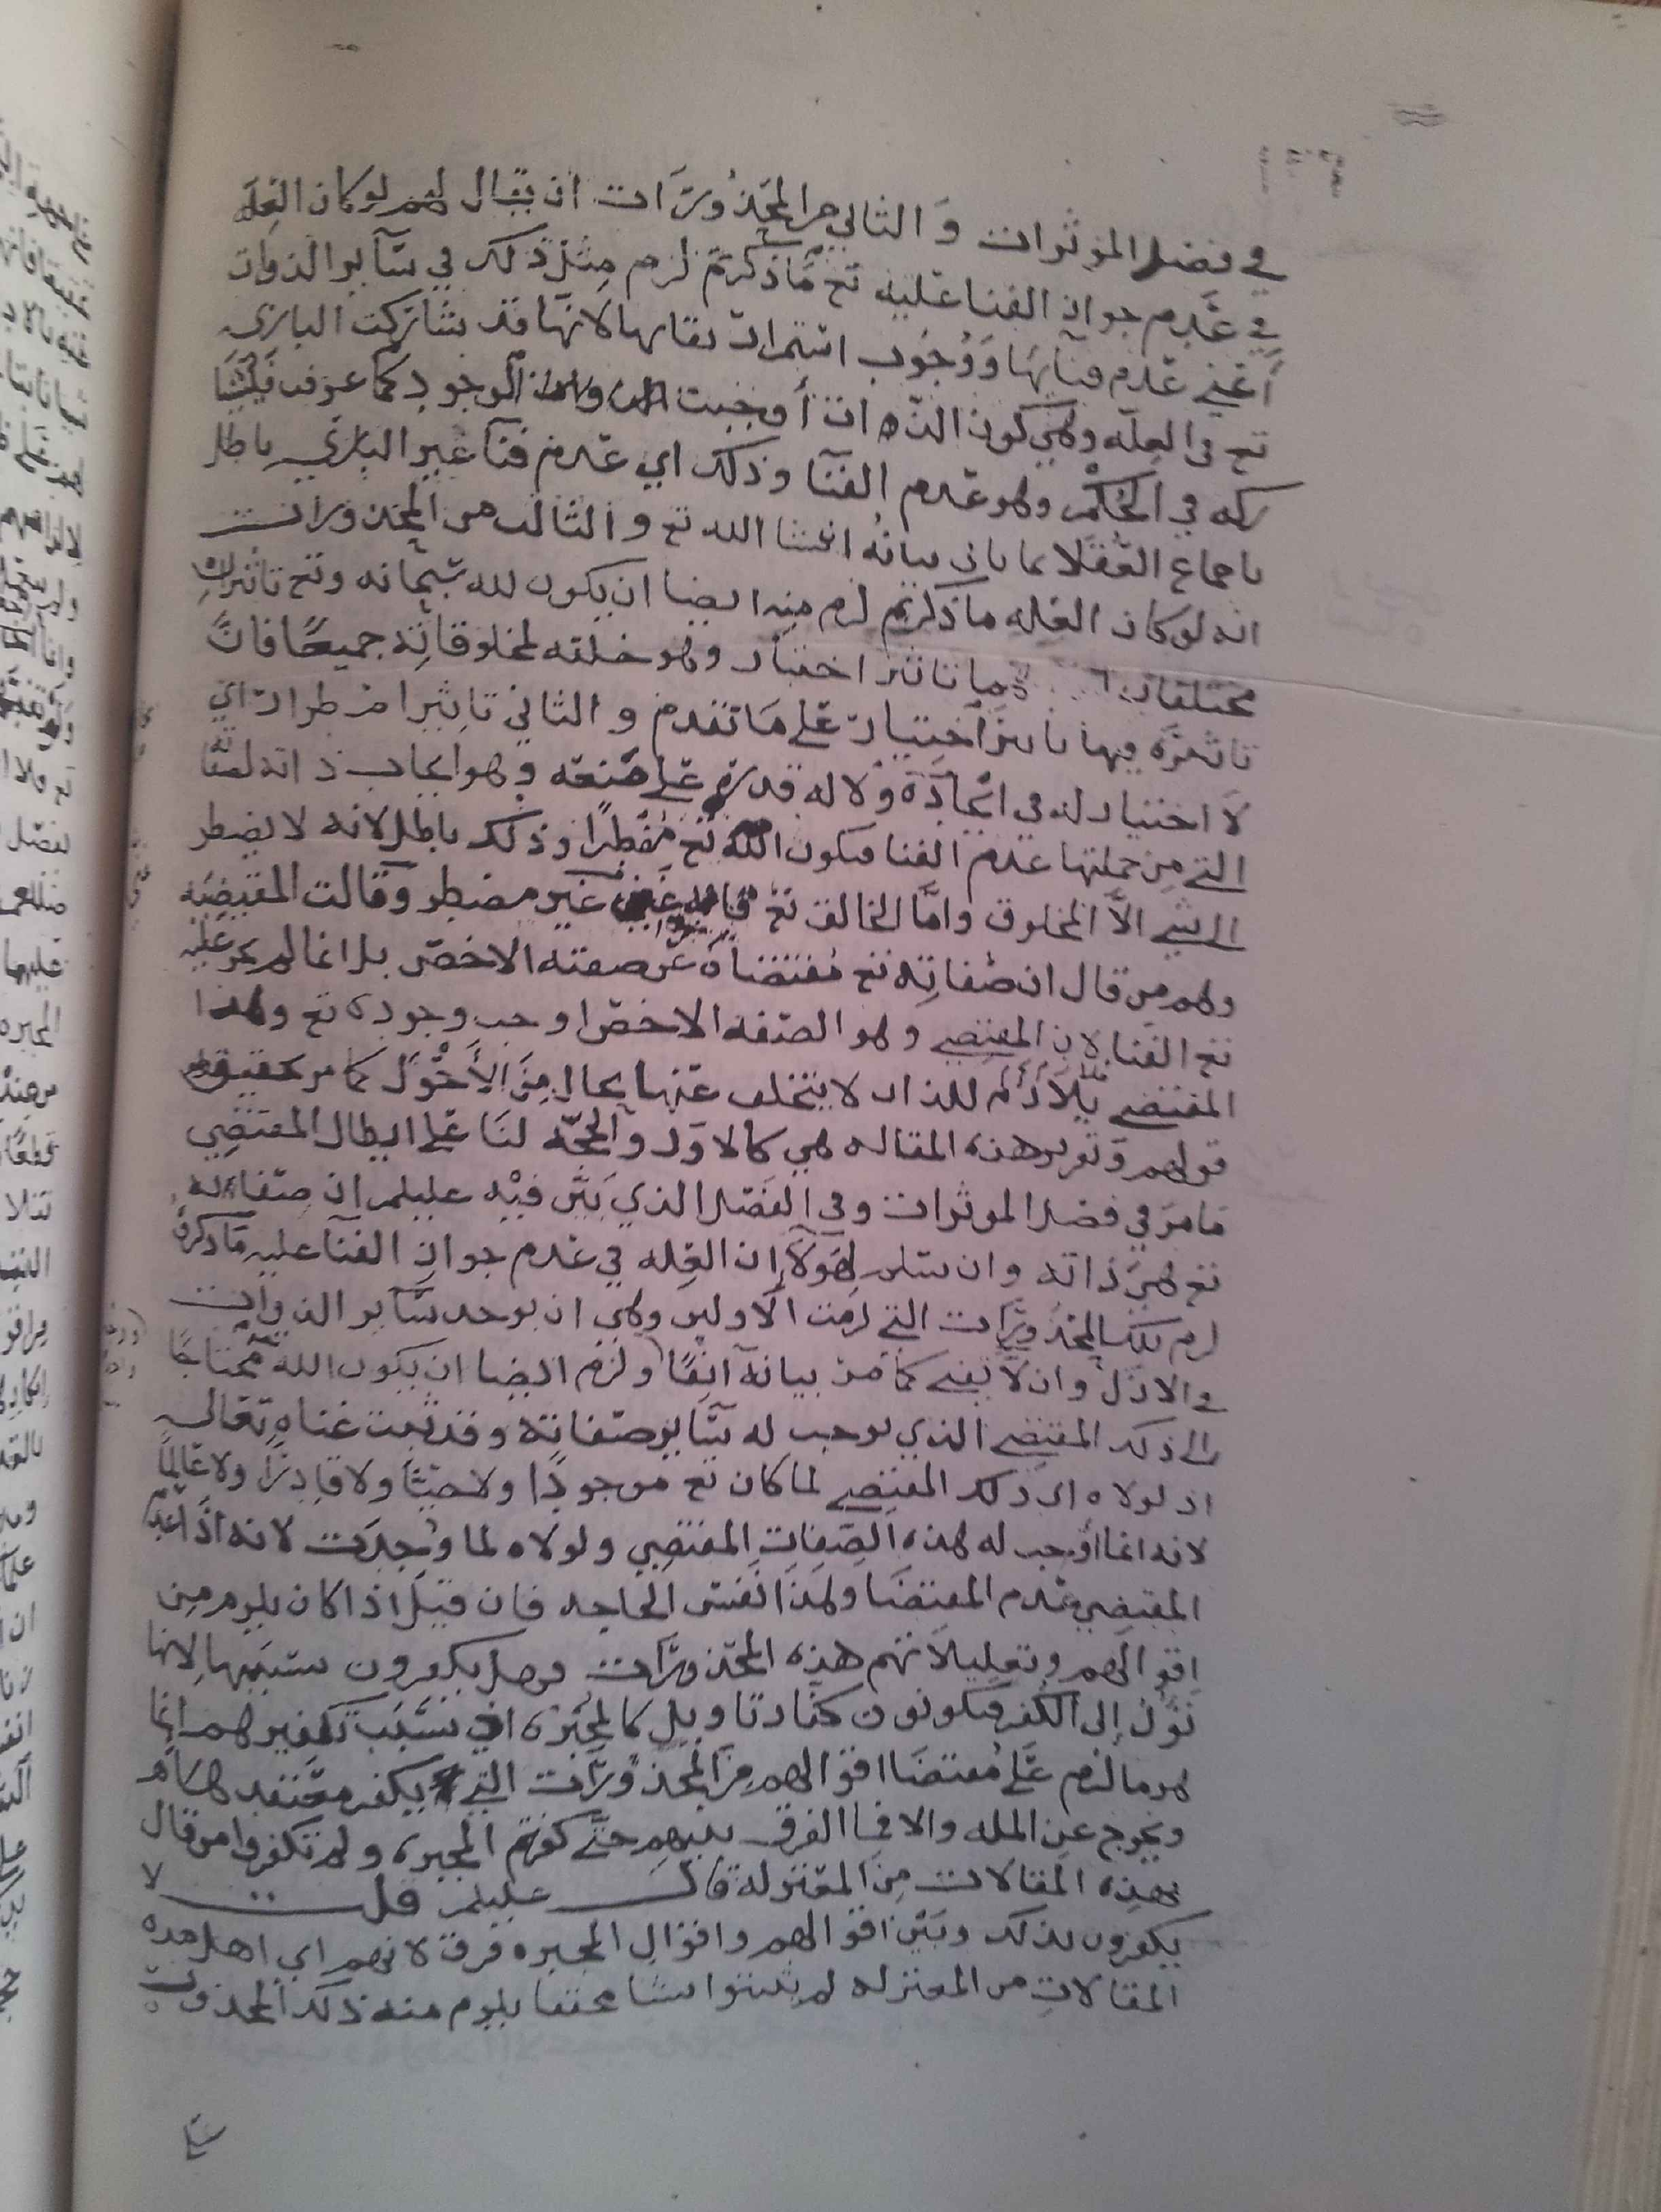 في فصل المؤثرات و الثاني من المحذورات ان يقال لهم لو كان العله
في عدم جواز الفنا عليه تع ما ذكرتم لزم مثل ذلك في سآير الذوات
أعني عدم فنآيها ووجوب استمرار بقايها لانها قد شاركت الباري
تع في العله وهي كون الذات أوجبت الوجود كما عرفت
ركه في الحكم وهو عدم الفنآ وذلك اي عدم فنآ غير الباري باطل
باجماع العقلا بما ياتي بيانه انشا الله تع و الثالث من المحذورات
انه لو كان العله ما ذكرتم لزم منه ايضا ان يكون لله سبحانه وتع تاثيران
مختلفان تاثير اختيار وهو خلقه لمخلوقاته جميعًا فان
تاثيره فيها تاثير اختيار على ما تقدم و الثاني تاثير اضطرار اي
لا اختيار له في ايجاده ولا له قدرة على صنعه وهو ايجاب ذاته لصفا
التي من جملتها عدم الفنا فيكون الله تع مضطرًا وذلك باطل لانه لا يضطر
الى شي الا المخلوق وامّا الخالق تع فانه غير مضطر وقالت المقتضيه
وهم من قال ان صفاته تع مقتضاه عن صفته الاخص بل انما لم يجز عليه
تع الفنا لان المقتضي وهو الصفه الاخص اوجب وجوده تع وهذا
المقتضي ملازم للذات لا يتخلف عنها بحال من الأحول كما مر تحقيق
قولهم وتقرير هذه المقاله هي كالاول والحجه لنا على ابطال المقتضي
ما مر في فصل المؤثرات وفي الفصل الذي بين فيه عليلم ان صفاته
تع هي ذاته وان سلم لهولآ ان العله في عدم جواز الفنآ عليه ما ذكره
لزم تلك المحذورات التي لزمت الاولين وهي ان يوجد سآير الذوات
في الازل وان لا تفنى كما مر بيانه آنفًا ولزم ايضا ان يكون الله محتاجًا
الى ذلك المقتضي الذي يوجب له سآير صفاته وقد ثبت غناه تعالى
اذ لولاه اي ذلك المقتضي لما كان تع موجودًا ولا حيًا ولا قادرًا ولا عالمًا
لانه انما أوجب له هذه الصفات المقتضي ولولاه لما وجدت لانه اذا عدم
المقتضي عدم المقتضا وهذا نفس الحاجه فان قيل اذا كان يلزم من
اقوالهم وتعليلاتهم هذه المحذورات فهل يكفرون بسببها لانها
تؤل إلى الكفر فيكونون كفار تاويل كالمجبره اذ سبب تكفيرهم انما
هو ما لزم على مقتضا اقوالهم من المحذورات التي يكفر معتقدها
ويخرج عن المله والا فما الفرق بينهم حتى كفرتم المجبره ولم تكفروا من قال
بهذه المقالات من المعتزله قال عليلم قلت لا
يكفرون بذلك وبين اقوالهم واقوال المجبره فرق لانهم اي اهل هذه
المقالات من المعتزله لم يثبتوا شيا محققا يلزم منه ذلك المحذور